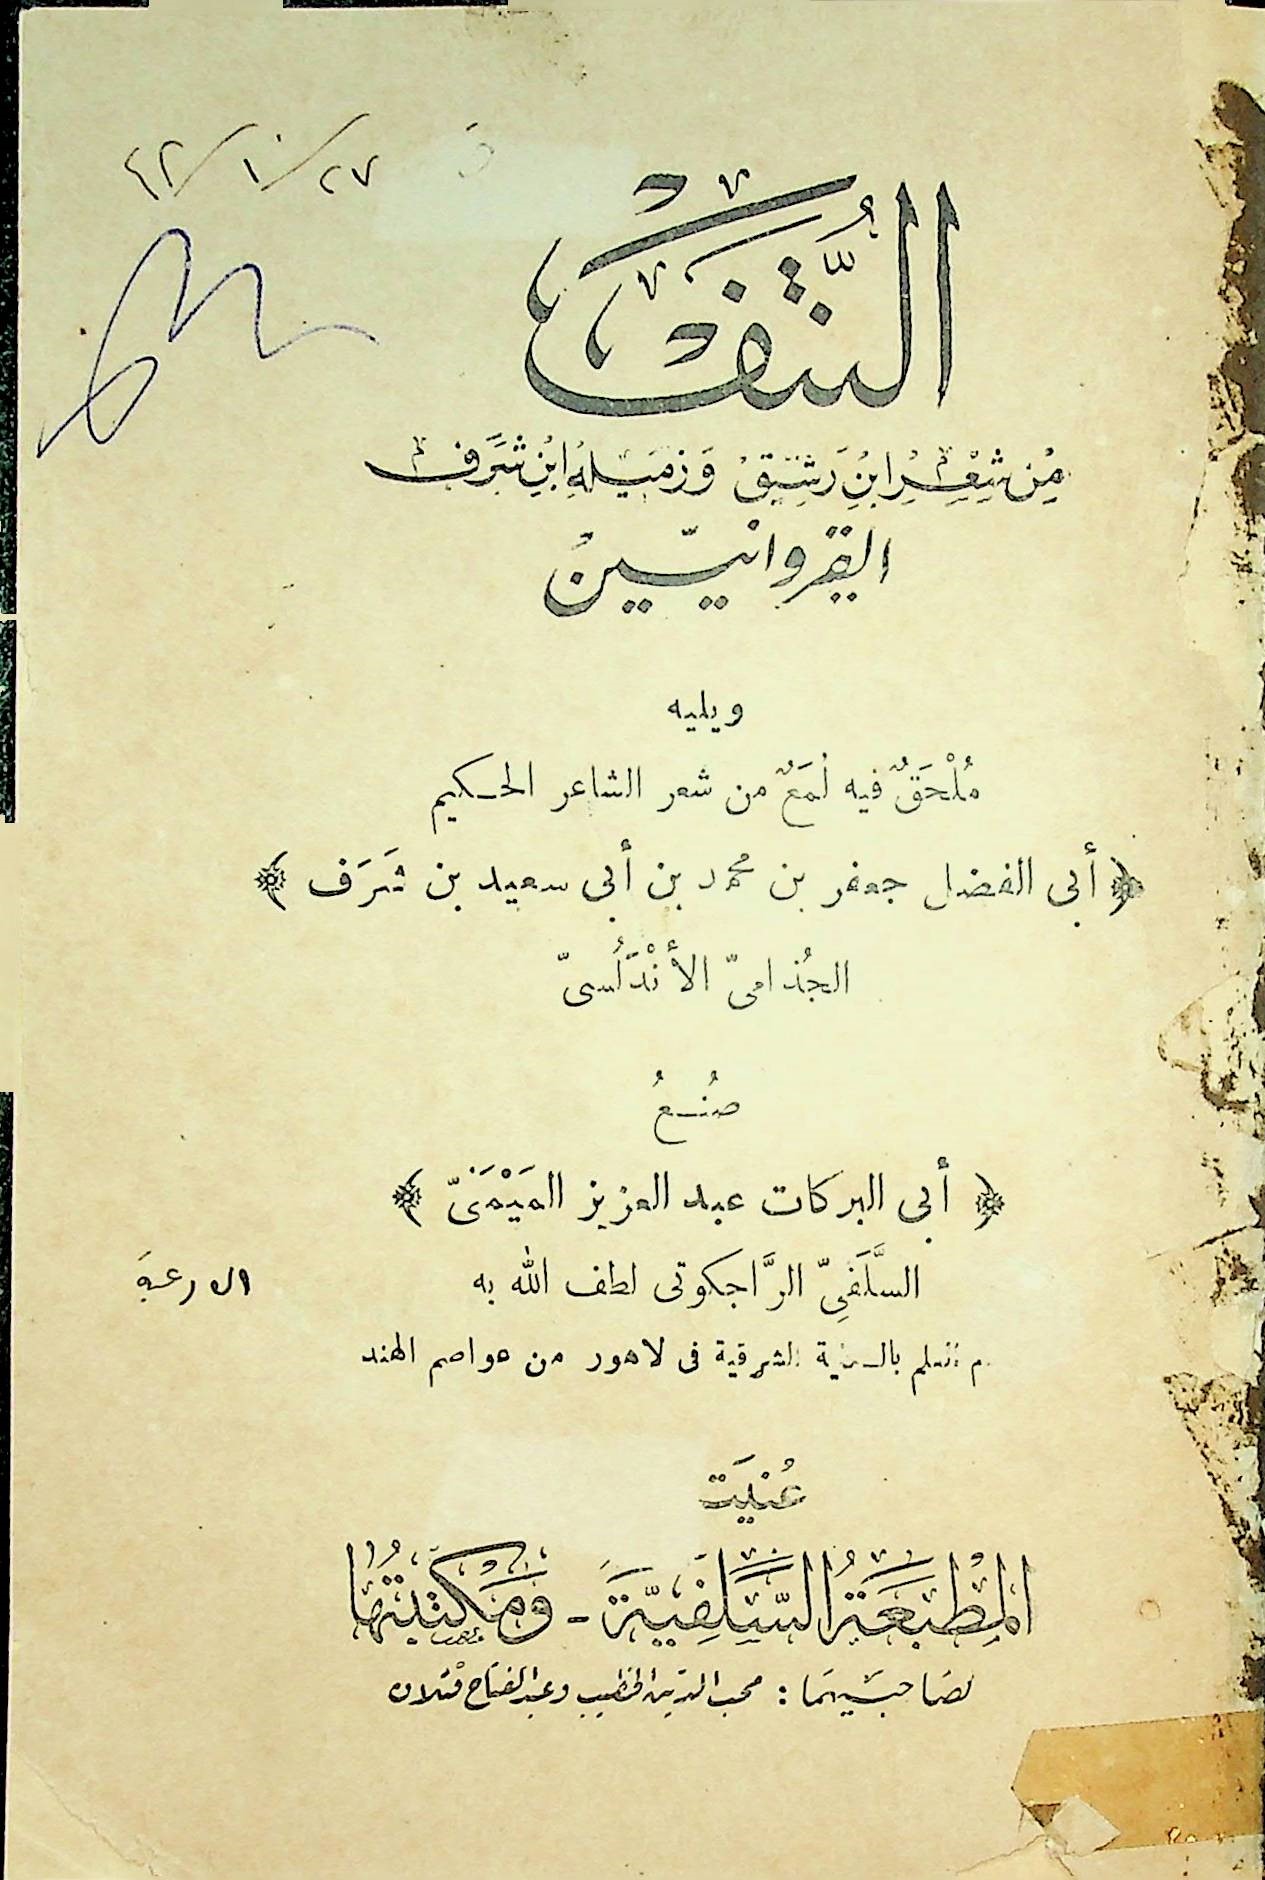 ٤٢/١٠/٢٧
النُّتَف
مِنْ شِعْرِ ابْنِ رَشِيْقْ وَزَمِيْلِهِ ابْنِ شَرَف
القيروانيّينْ
ويليه
مُلْحَقٌ فيه لُمَعٌ من شعر الشاعر الحكيم
﴿ أبى الفضل جعفر بن محمد بن أبى سعيد بن شَرَف ﴾
الجُذامىّ الأَنْدَلُسىّ
صُنْعُ
﴿ أبى البركات عبد العزيز المَيْمَنىّ ﴾
السَّلَفىّ الرَّاجكوتى لطف الله به
الشرقية فى لاهور من عواصم الهند
عُنيَت
المَطْبَعَةُ السَّلَفِيَّة - وَمَكْتَبَتُهَا
لصَاحبَيهمَا : محب الدين الخطيب وعبد الفتاح قتلان